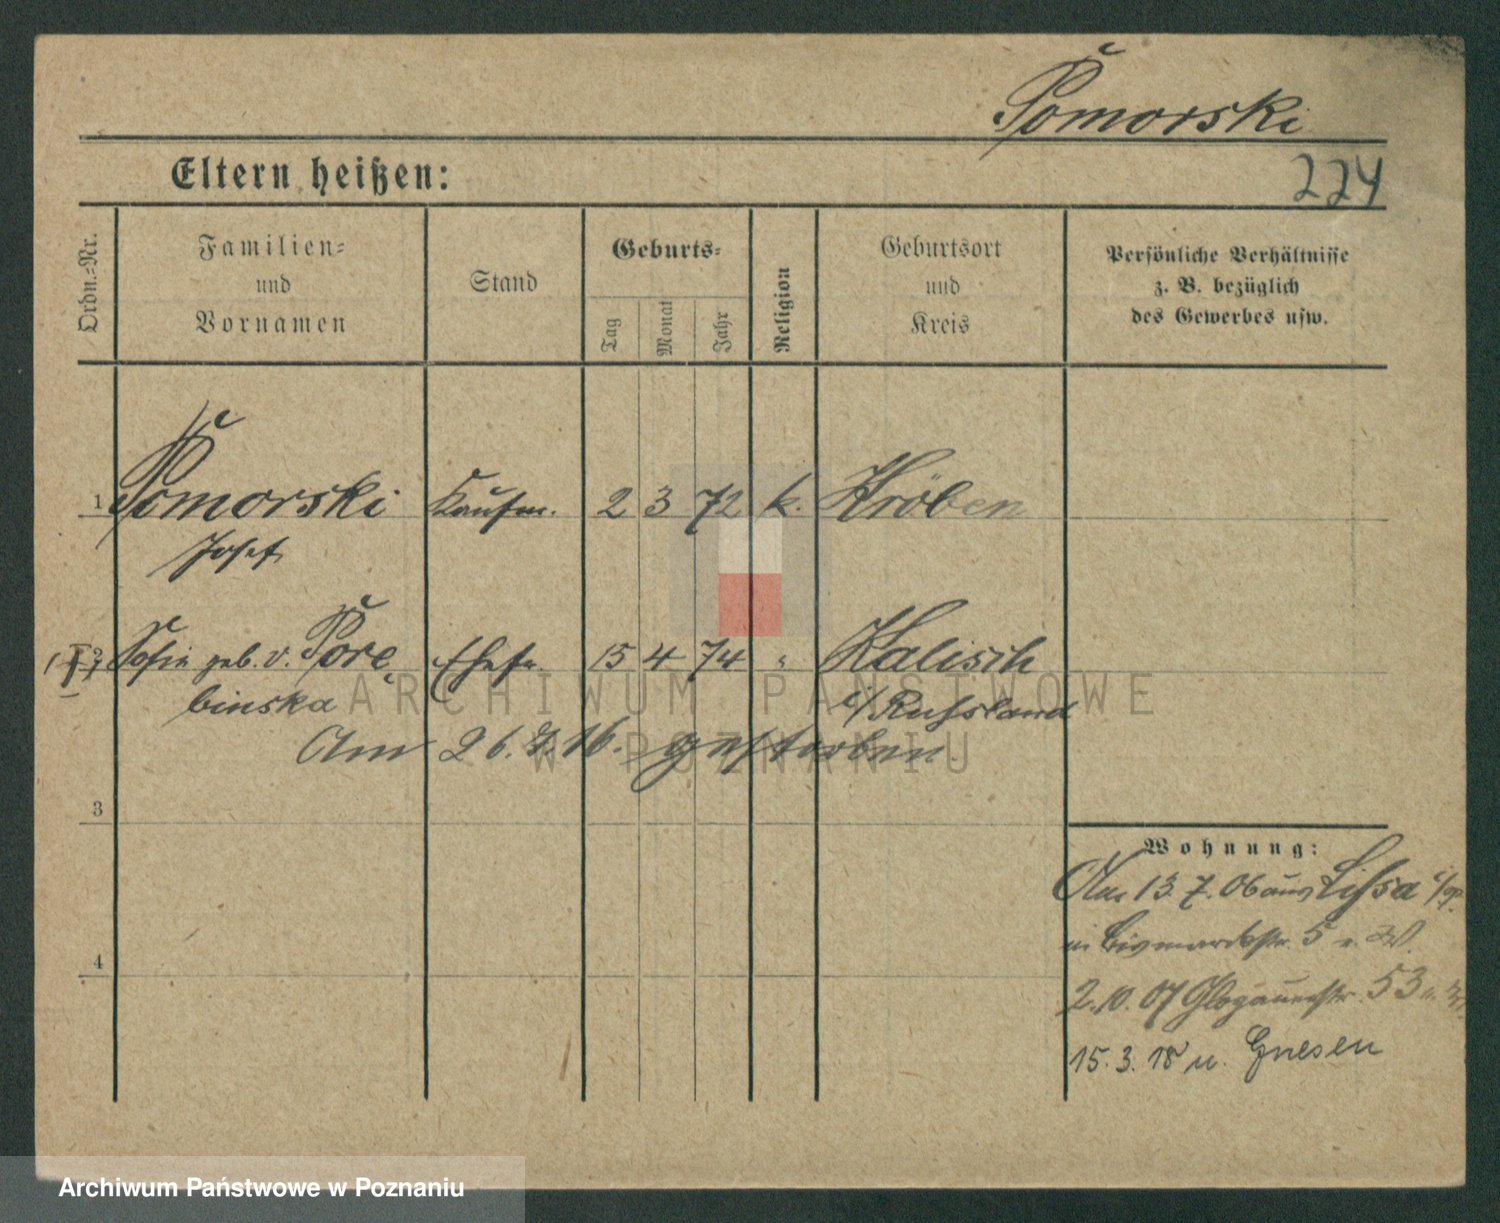 Pomorski
Eltern heißen:
224
Ordn.-Nr.
Familien-
und
Vornamen
Stand
Geburts-
Tag
Monat
Jahr
Religion
Geburtsort
und
Kreis
Persönliche Verhältnisse
z. B. bezüglich
des Gewerbes usw.
1 Pomorski Kaufm. 2 3 72 k. Kröben
Josef
2 Sofia geb. v. Porę Ehefr. 15 4 74 " Kalisch
binska i/Russland
Am 26. 7. 16. gestorben
3
4
Wohnung:
13. 7. 06 aus Lissa
in Bismarckstr. 5
2. 10. 07 Glogauerstr. 53
15. 3. 18 n. Gnesen
ARCHIWUM PAŃSTWOWE
W POZNANIU
Archiwum Państwowe w Poznaniu